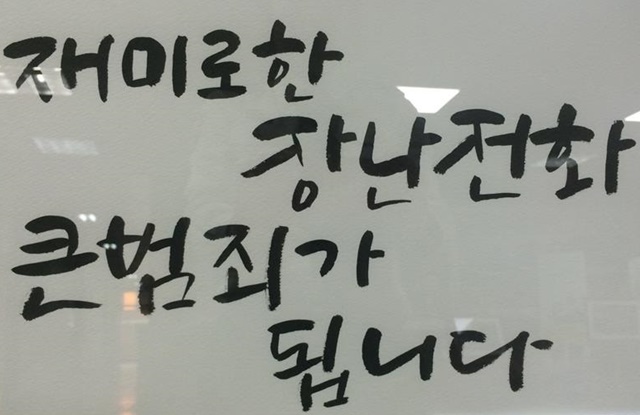 재미로한
장난전화
큰범죄가
됩니다